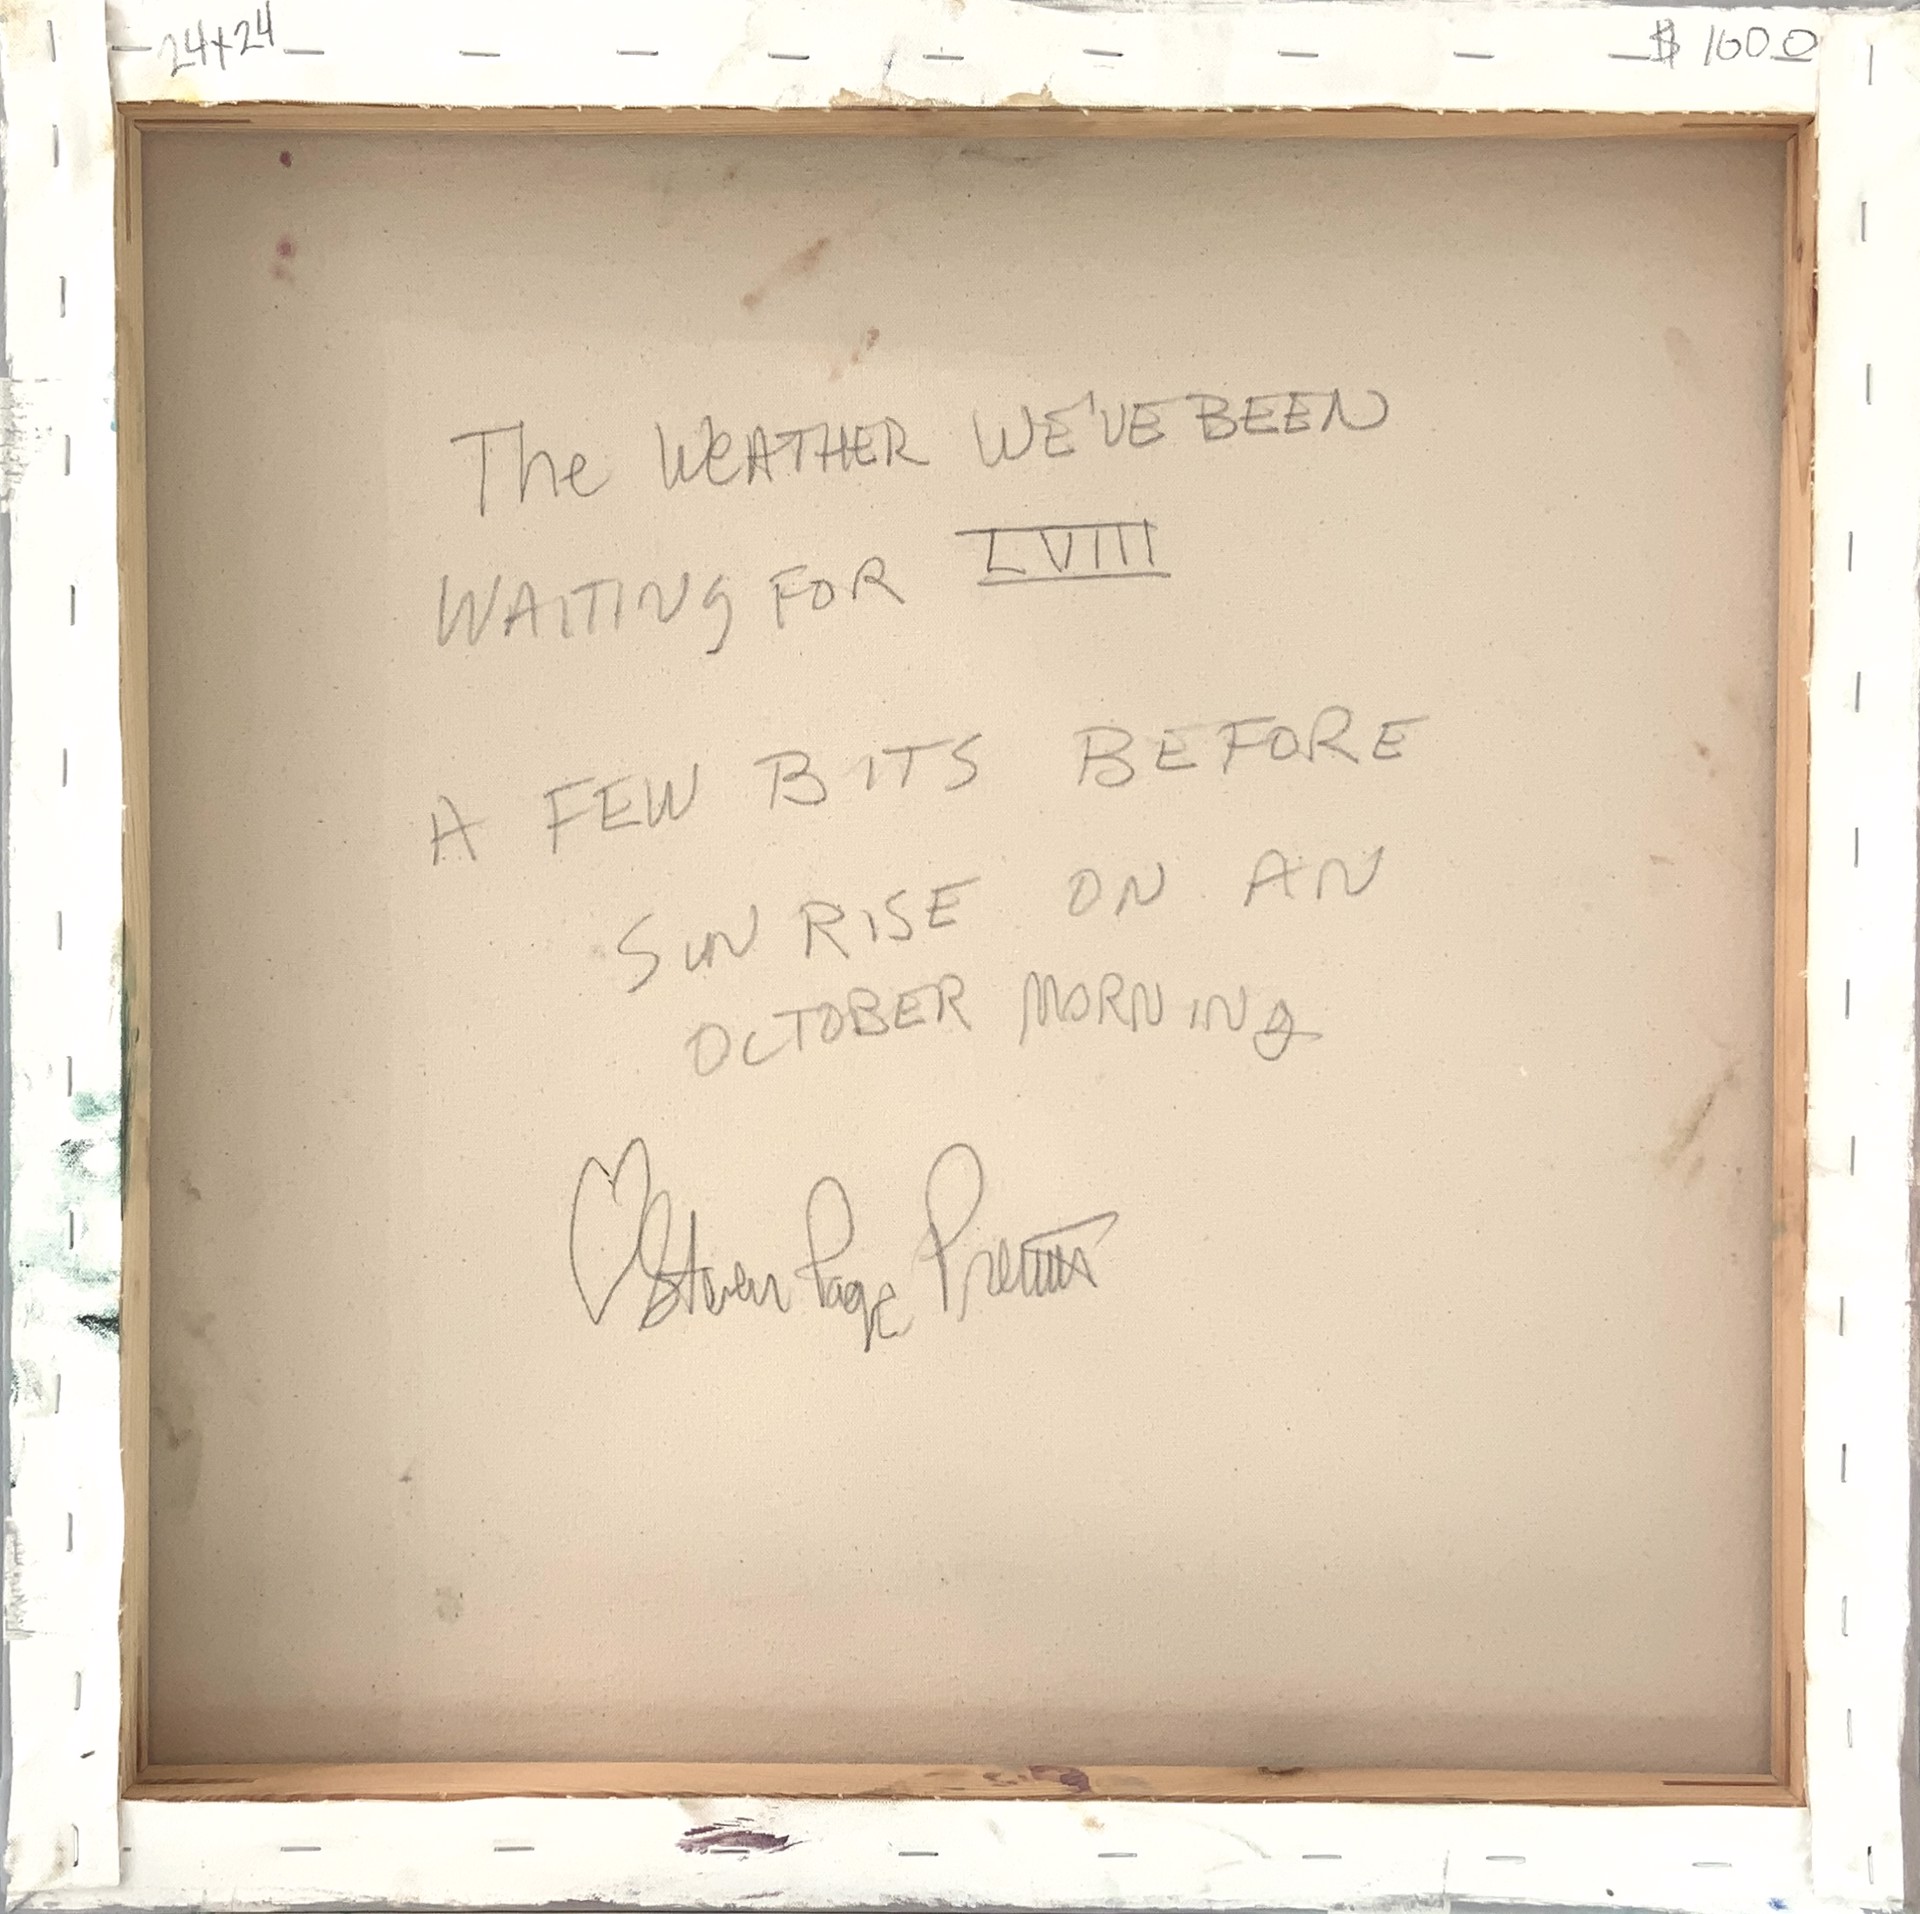 24x24
$ 1600
The WeATHER WE'VE BEEN
WAITING FOR LVIII
A FEW BITS BEFORE
SUNRISE ON AN
OCTOBER MORNING
Steven Page Prewitt